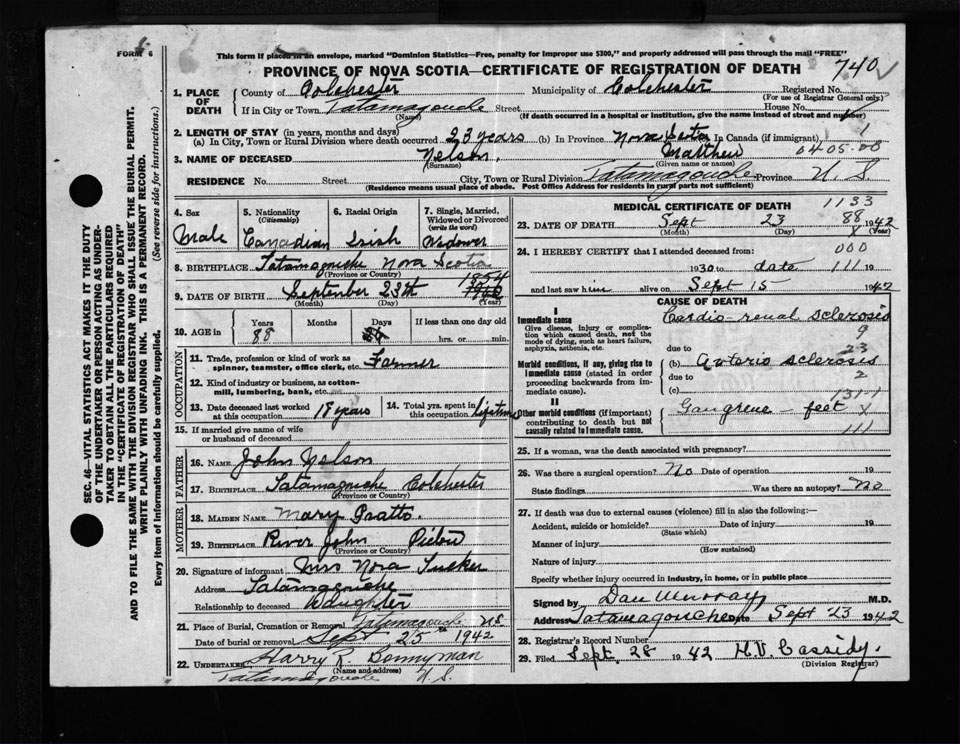 FORM 6
This form if placed in an envelope, marked "Dominion Statistics—Free, penalty for improper use $300," and properly addressed will pass through the mail "FREE"
PROVINCE OF NOVA SCOTIA—CERTIFICATE OF REGISTRATION OF DEATH 740
1. PLACE OF DEATH County of Colchester Municipality of Colchester Registered No.
(For use of Registrar General only.)
If in City or Town Tatamagouche Street House No.
(Name) (If death occurred in a hospital or institution, give the name instead of street and number)
2. LENGTH OF STAY (in years, months and days)
(a) In City, Town or Rural Division where death occurred 23 years (b) In Province Nova Scotia In Canada (if immigrant)
3. NAME OF DECEASED Nelson, Matthew 0405.00
(Surname) (Given name or names)
RESIDENCE No. Street City, Town or Rural Division Tatamagouche Province N. S.
(Residence means usual place of abode. Post Office Address for residents in rural parts not sufficient)
4. Sex Male
5. Nationality (Citizenship) Canadian
6. Racial Origin Irish
7. Single, Married, Widowed or Divorced (write the word) Widower
8. BIRTHPLACE Tatamagouche Nova Scotia
(Province or Country)
9. DATE OF BIRTH September 23th 1854
(Month) (Day) (Year)
10. AGE in Years 88 Months Days If less than one day old hrs. or min.
OCCUPATION
11. Trade, profession or kind of work as spinner, teamster, office clerk, etc. Farmer
12. Kind of industry or business, as cotton-mill, lumbering, bank, etc.
13. Date deceased last worked at this occupation 18 years
14. Total yrs. spent in this occupation lifetime
15. If married give name of wife or husband of deceased
FATHER
16. NAME John Nelson
17. BIRTHPLACE Tatamagouche Colchester
(Province or Country)
MOTHER
18. MAIDEN NAME Mary Pratto
19. BIRTHPLACE River John Pictou
(Province or Country)
20. Signature of informant Mrs Nora Tucker
Address Tatamagouche
Relationship to deceased Daughter
21. Place of Burial, Cremation or Removal Tatamagouche NS
Date of burial or removal Sept 25th 1942
22. UNDERTAKER Harry R Bonnyman
(Name and address)
Tatamagouche N. S.
MEDICAL CERTIFICATE OF DEATH 1133
23. DATE OF DEATH Sept 23 1942
88
(Month) (Day) (Year)
24. I HEREBY CERTIFY that I attended deceased from: 000
1930 to date 111 19
and last saw him alive on Sept 15 1942
CAUSE OF DEATH
I
Immediate cause
Give disease, injury or complication which caused death, not the mode of dying, such as heart failure, asphyxia, asthenia, etc.
Cardio-renal sclerosis
9
due to 23
Morbid conditions, if any, giving rise to immediate cause (stated in order proceeding backwards from immediate cause).
(b) Arterio sclerosis
due to 2
(c) 131-1
II
Other morbid conditions (if important) contributing to death but not causally related to immediate cause.
Gangrene - feet X
111
25. If a woman, was the death associated with pregnancy?
26. Was there a surgical operation? No Date of operation 19
State findings Was there an autopsy? No
27. If death was due to external causes (violence) fill in also the following:—
Accident, suicide or homicide? Date of injury 19
(State which)
Manner of injury
(How sustained)
Nature of injury
Specify whether injury occurred in industry, in home, or in public place
Signed by Dan Murray M.D.
Address Tatamagouche Date Sept 23 1942
28. Registrar's Record Number
29. Filed Sept. 28 1942 H.V. Cassidy.
(Division Registrar)
SEC. 46—VITAL STATISTICS ACT MAKES IT THE DUTY
OF THE UNDERTAKER OR PERSON ACTING AS UNDERTAKER TO OBTAIN ALL THE PARTICULARS REQUIRED
IN THE "CERTIFICATE OF REGISTRATION OF DEATH"
AND TO FILE THE SAME WITH THE DIVISION REGISTRAR WHO SHALL ISSUE THE BURIAL PERMIT.
WRITE PLAINLY WITH UNFADING INK. THIS IS A PERMANENT RECORD.
Every item of information should be carefully supplied. (See reverse side for instructions.)